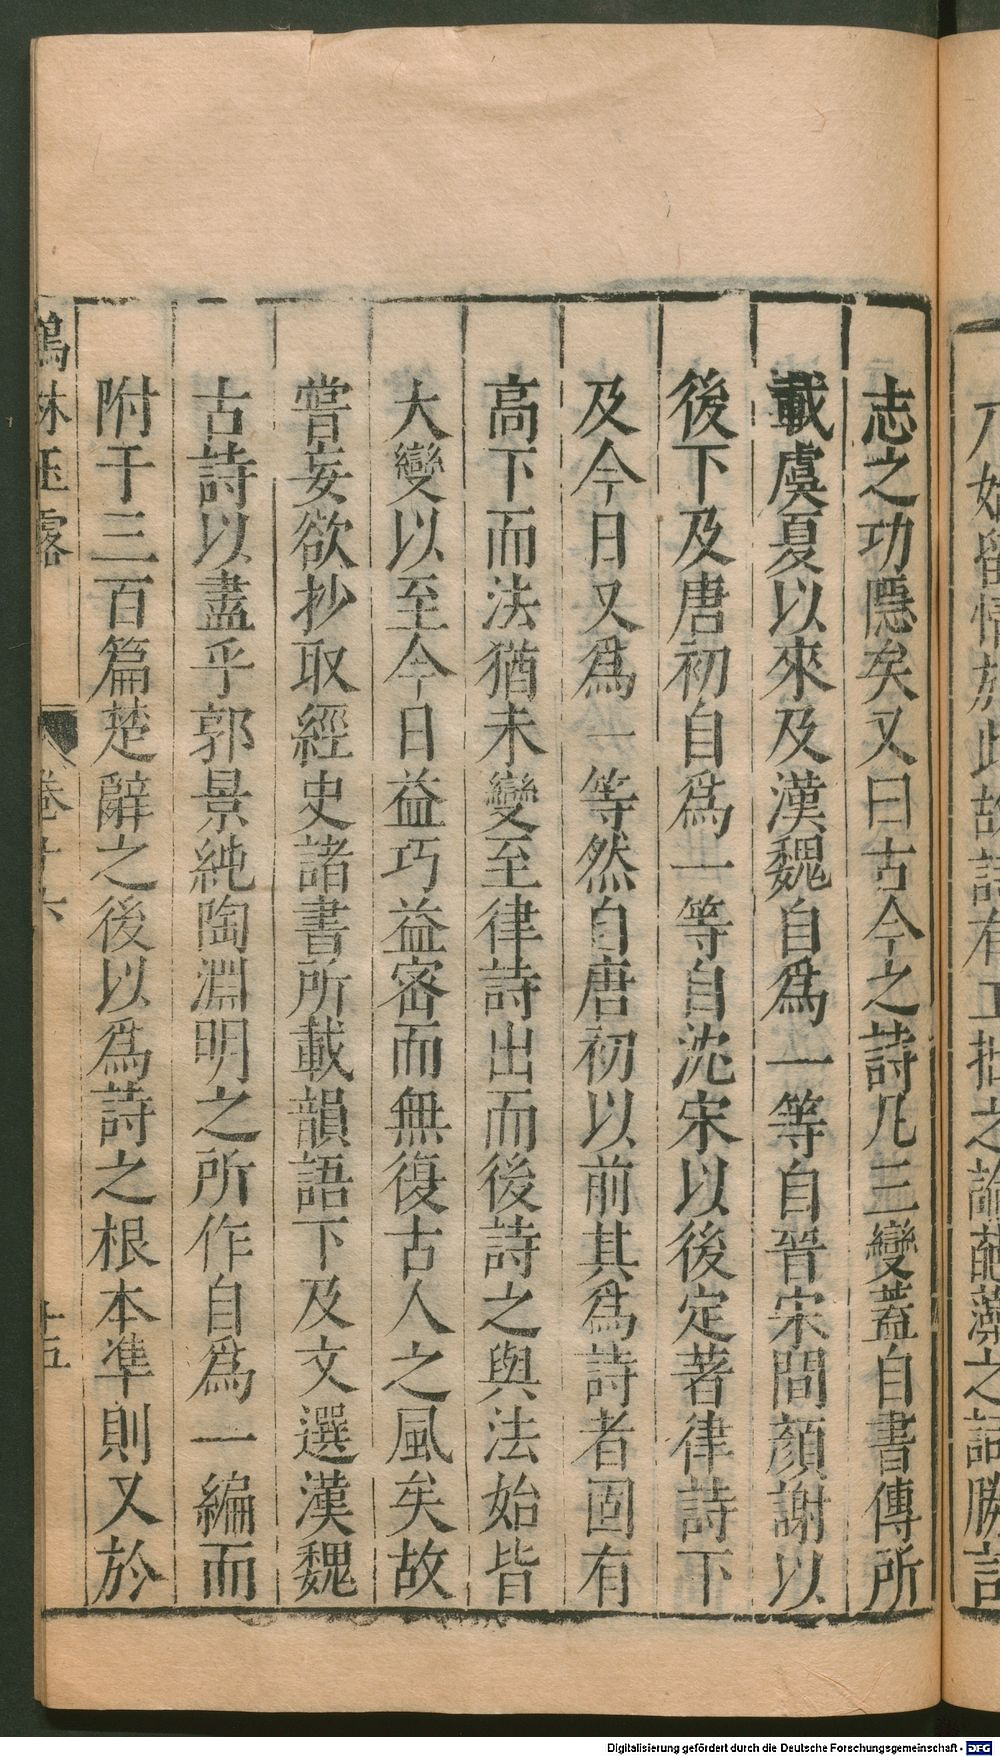 志之功隱矣又曰古今之詩凡三變蓋自書傳所
載虞夏以來及漢魏自為一等自晉宋間顏謝以
後下及唐初自為一等自沈宋以後定著律詩下
及今日又為一等然自唐初以前其為詩者固有
高下而法猶未變至律詩出而後詩之與法始皆
大變以至今日益巧益密而無復古人之風矣故
嘗妄欲抄取經史諸書所載韻語下及文選漢魏
古詩以盡乎郭景純陶淵明之所作自為一編而
附于三百篇楚辭之後以為詩之根本準則又於
鶴林玉露
卷十六
十五
Digitalisierung gefördert durch die Deutsche Forschungsgemeinschaft - DFG